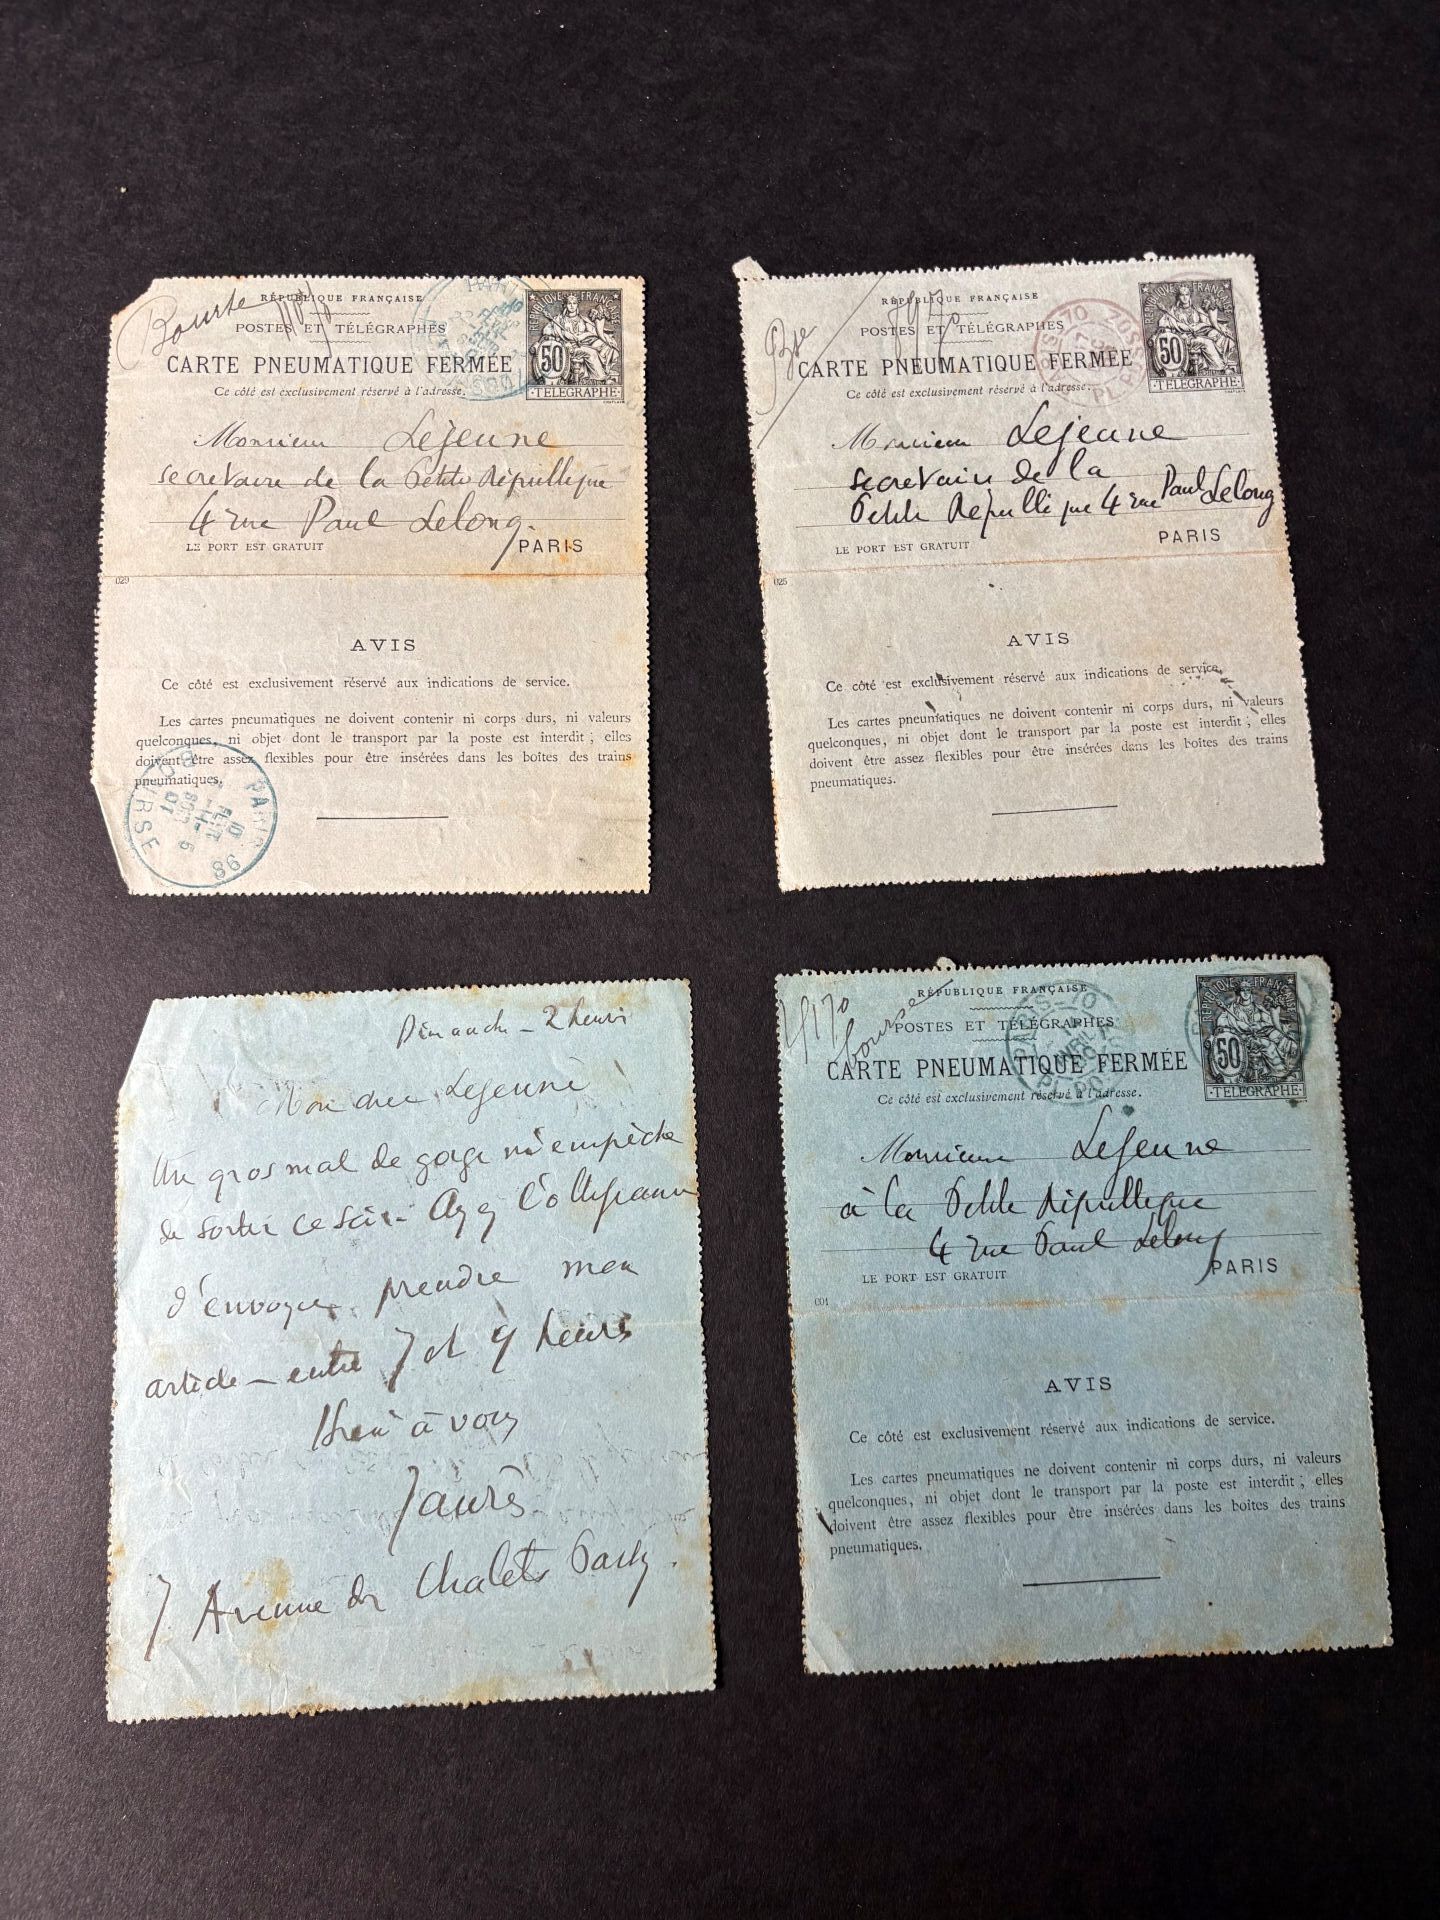 Bourse
RÉPUBLIQUE FRANÇAISE
POSTES ET TÉLÉGRAPHES
CARTE PNEUMATIQUE FERMÉE
Ce côté est exclusivement réservé à l'adresse.
REPUBLIQUE FRANÇAISE
50
TÉLÉGRAPHE
Monsieur Lejeune
secretaire de la Petite République
4 rue Paul Lelong.
LE PORT EST GRATUIT
PARIS
029
AVIS
Ce côté est exclusivement réservé aux indications de service.
Les cartes pneumatiques ne doivent contenir ni corps durs, ni valeurs
quelconques, ni objet dont le transport par la poste est interdit ; elles
doivent être assez flexibles pour être insérées dans les boîtes des trains
pneumatiques.
PARIS
98
BOURSE
Bse
RÉPUBLIQUE FRANÇAISE
POSTES ET TÉLÉGRAPHES
CARTE PNEUMATIQUE FERMÉE
Ce côté est exclusivement réservé à l'adresse.
REPUBLIQUE FRANÇAISE
50
TÉLÉGRAPHE
Monsieur Lejeune
secretaire de la
Petite République 4 rue Paul Lelong
LE PORT EST GRATUIT
PARIS
025
AVIS
Ce côté est exclusivement réservé aux indications de service.
Les cartes pneumatiques ne doivent contenir ni corps durs, ni valeurs
quelconques, ni objet dont le transport par la poste est interdit ; elles
doivent être assez flexibles pour être insérées dans les boîtes des trains
pneumatiques.
Dimanche - 2 heures
Mon cher Lejeune
Un gros mal de gorge m'empêche
de sortir ce soir. Ayez l'obligeance
d'envoyer prendre mon
article - entre 7 et 9 heures
Bien à vous
Jaurès
7 Avenue des Chalets Passy.
bourse
RÉPUBLIQUE FRANÇAISE
POSTES ET TÉLÉGRAPHES
CARTE PNEUMATIQUE FERMÉE
Ce côté est exclusivement réservé à l'adresse.
REPUBLIQUE FRANÇAISE
50
TÉLÉGRAPHE
Monsieur Lejeune
à la Petite République
4 rue Paul Lelong
LE PORT EST GRATUIT
PARIS
001
AVIS
Ce côté est exclusivement réservé aux indications de service.
Les cartes pneumatiques ne doivent contenir ni corps durs, ni valeurs
quelconques, ni objet dont le transport par la poste est interdit ; elles
doivent être assez flexibles pour être insérées dans les boîtes des trains
pneumatiques.